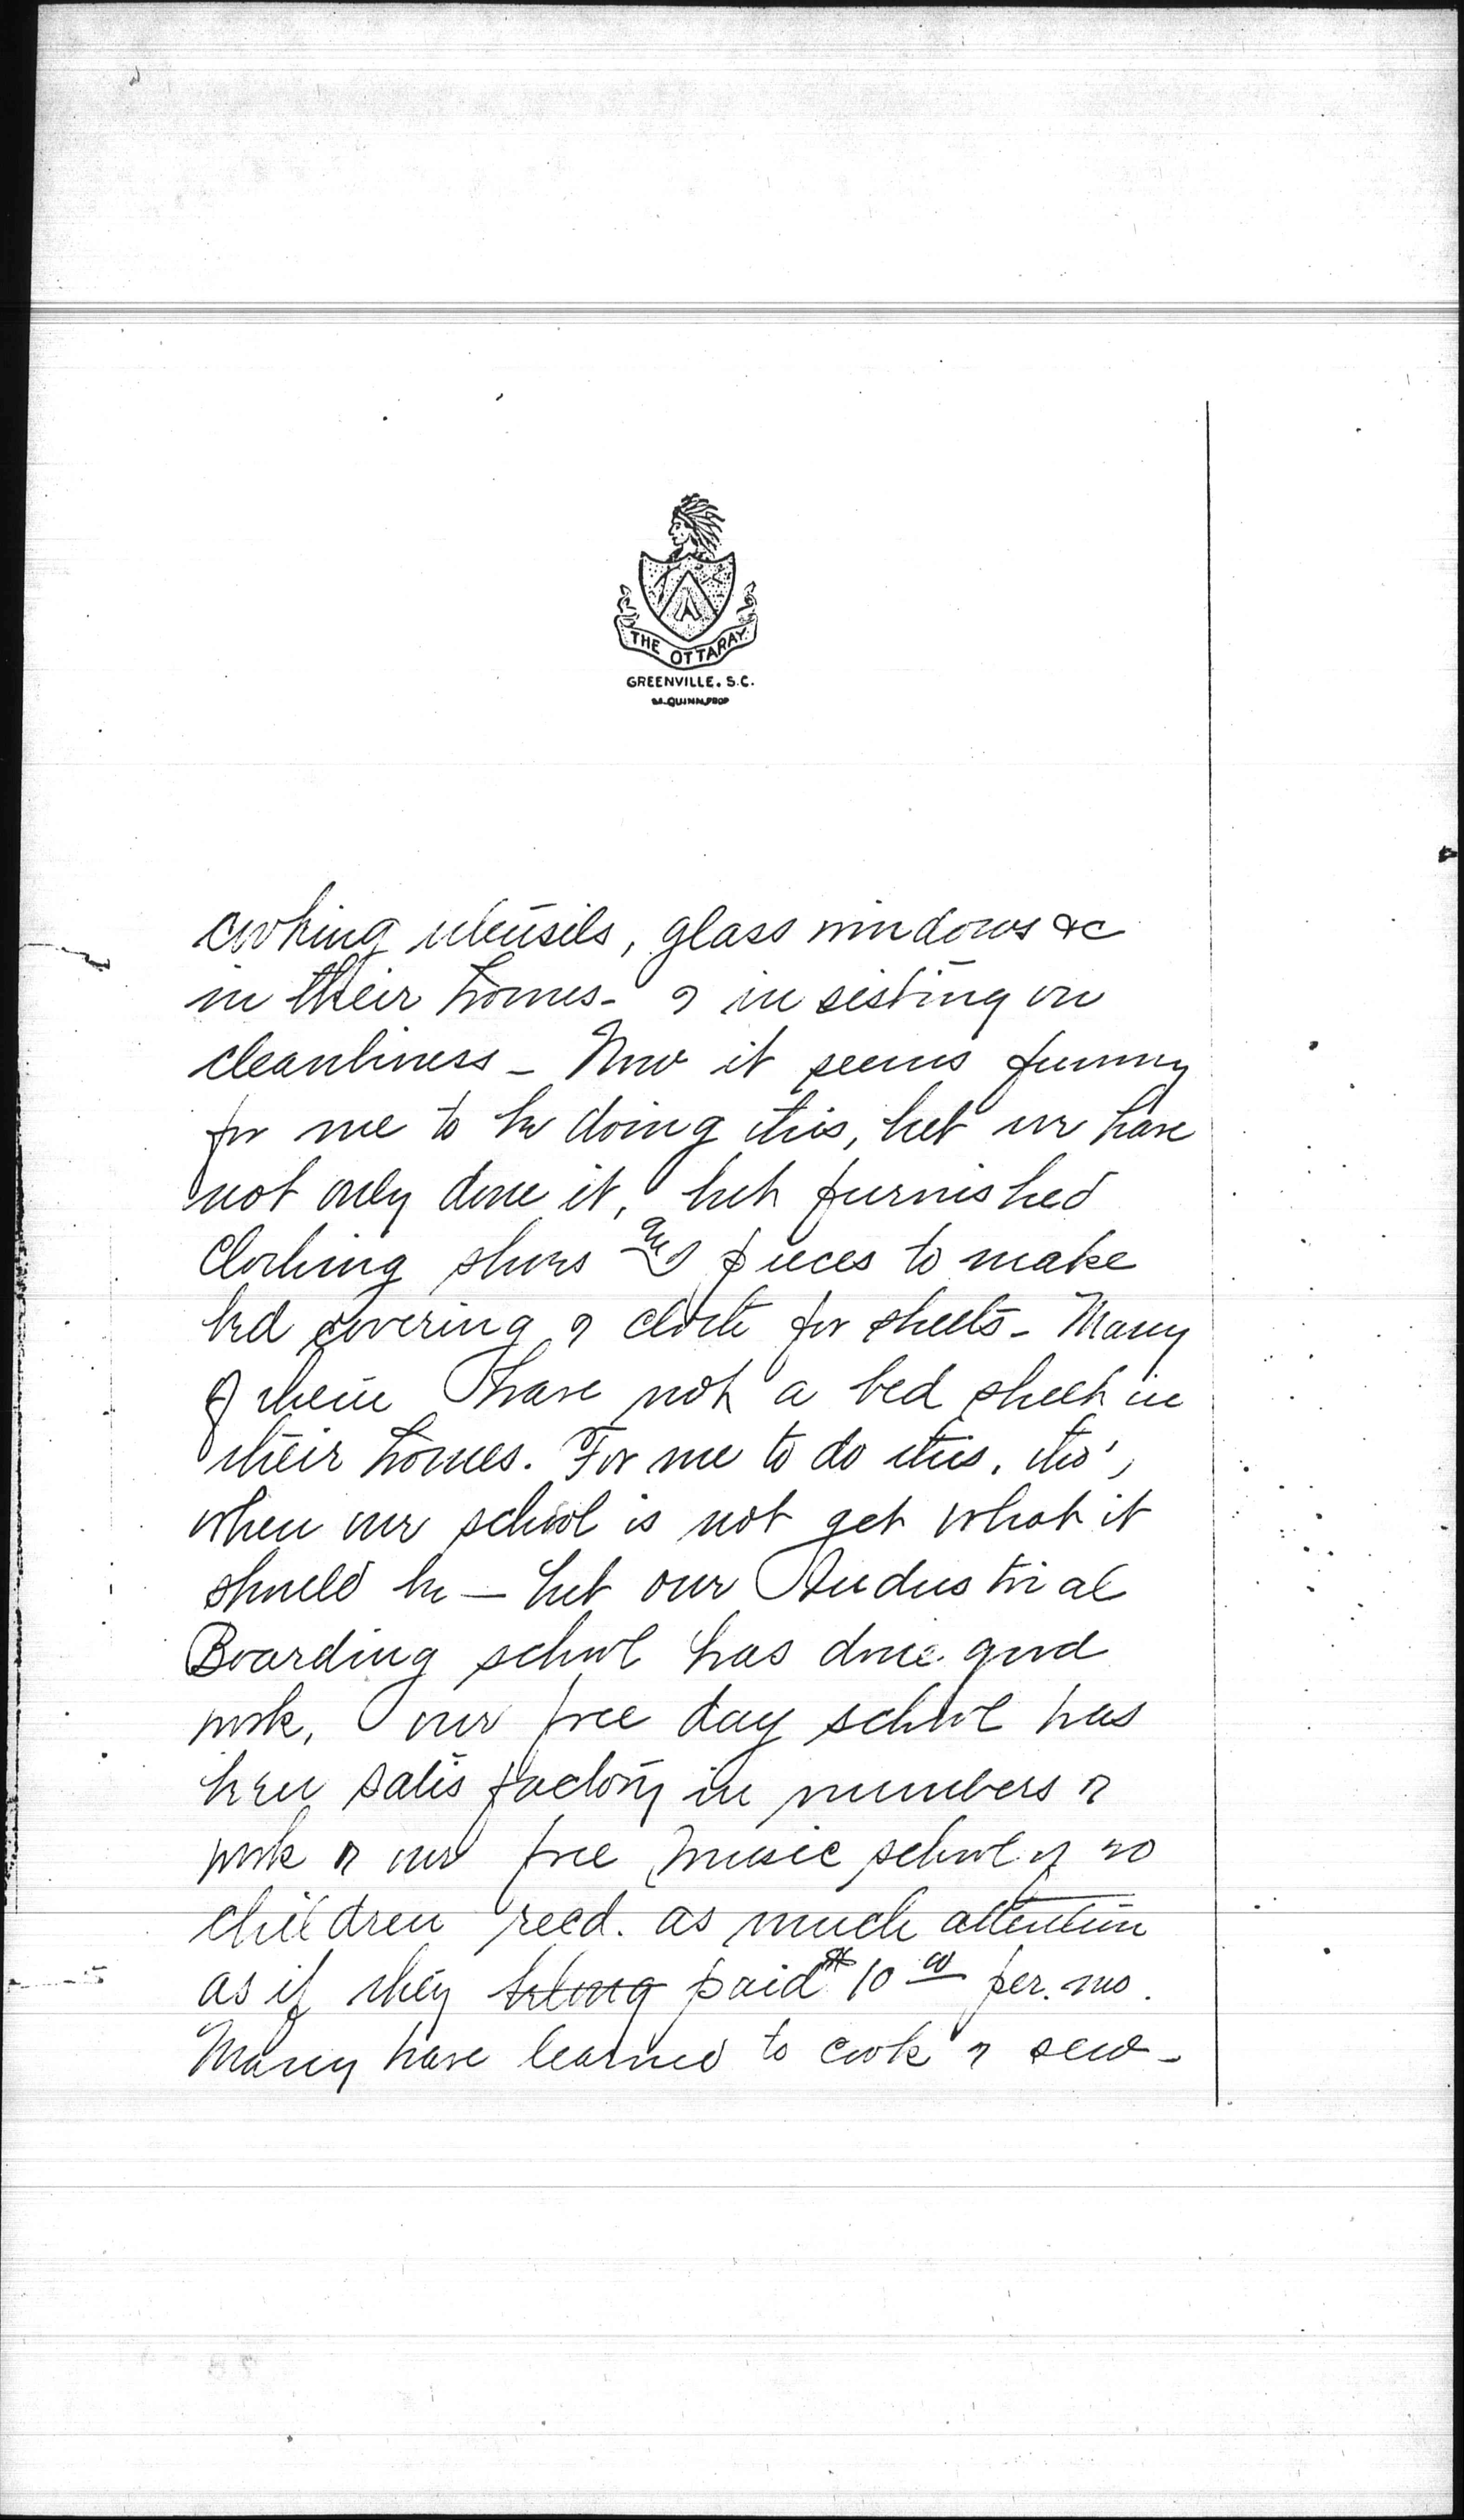 THE OTTARAY
GREENVILLE. S.C.
cooking utensils, glass windows &c
in their homes - & insisting on
cleanliness - Now it seems funny
for me to be doing this, but we have
not only done it, but furnished
clothing shoes pieces to make
bed covering & cloth for sheets - Many
of them have not a bed sheet in
their homes. For me to do this, tho',
when our school is not yet what it
should be — but our Industrial
Boarding school has done good
work, our free day school has
been satisfactory in numbers &
work & our free music school of 20
children recd. as much attention
as if they belong paid $10 00 per. mo.
Many have learned to cook & sew -